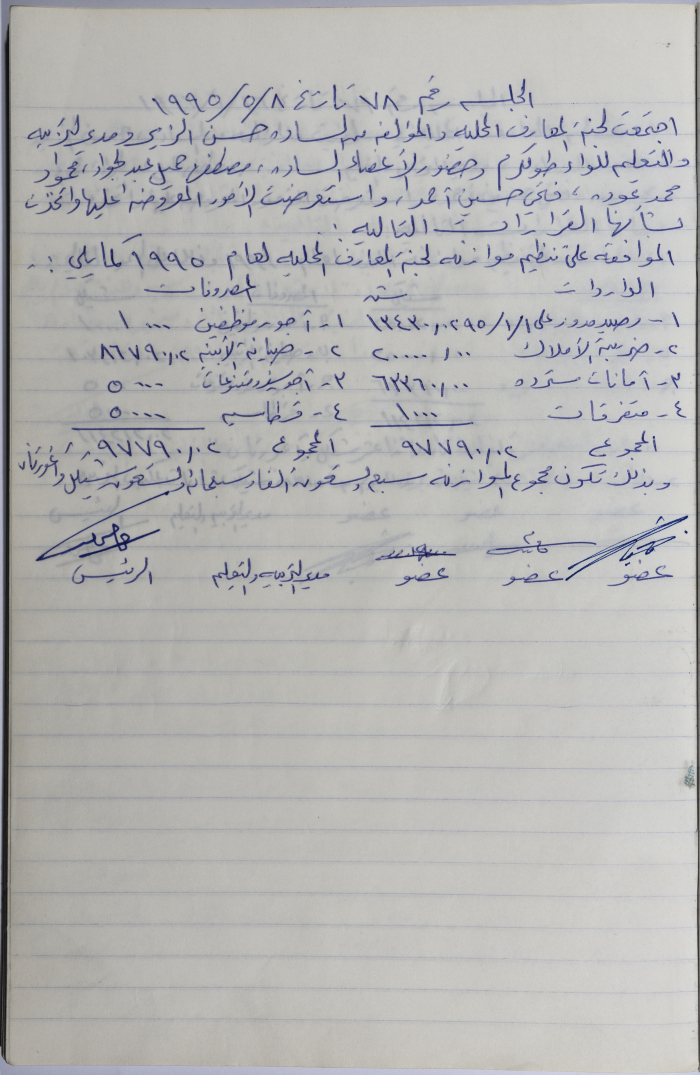 الجلسه رقم ٧٨ تاريخ ٨/٥/١٩٩٥
اجتمعت لجنة المعارف المحليه والمؤلفه من الساده حسن الراي ومدير التربيه
والتعليم للواء طولكرم وحضور الأعضاء الساده، مصطفى جميل عبد الجواد، جواد
محمد عوده، فتحي حسين أحمد، واستعرضت الأمور المعروضه عليها واتخذت
بشأنها القرارات التاليه:
الموافقه على تنظيم موازنه لجنة المعارف المحليه لعام ١٩٩٥ كما يلي:
الواردات المصروفات
١- رصيد مدور على ١/١/٩٥ ١٣٤٣٠,٠٢ ١- أجور موظفين ١٠٠٠
٢- ضريبة الأملاك ٢٠٠٠٠,٠٠ ٢- صيانة الأبنيه ٨٦٧٩٠,٠٢
٣- أمانات مسترده ٦٣٣٦٠,٠٠ ٣- أجور ومتنوعات ٥٠٠٠
٤- متفرقات ١٠٠٠ ٤- قرطاسيه ٥٠٠٠
المجموع ٩٧٧٩٠,٠٢ المجموع ٩٧٧٩٠,٠٢
وبذلك تكون مجموع الموازنه سبع وتسعون الفا وسبعمائه وتسعون شيكل وأغورتان
عضو عضو عضو مدير التربيه والتعليم الرئيس